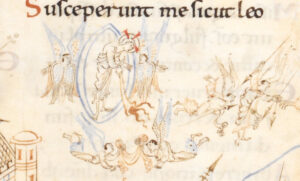 Susceperunt me sicut leo